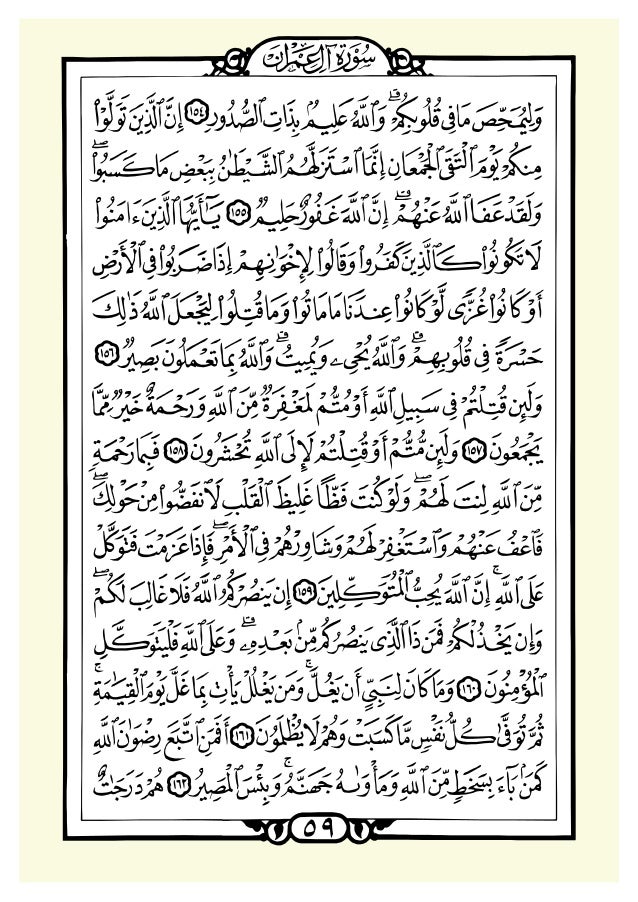 سُورَةُ آلِ عِمْرَانَ
وَلِيُمَحِّصَ مَا فِي قُلُوبِكُمْۗ وَاللَّهُ عَلِيمُۢ بِذَاتِ الصُّدُورِ ١٥٤ إِنَّ الَّذِينَ تَوَلَّوْا۟
مِنكُمْ يَوْمَ الْتَقَى الْجَمْعَانِ إِنَّمَا اسْتَزَلَّهُمُ الشَّيْطَٰنُ بِبَعْضِ مَا كَسَبُوا۟ۖ
وَلَقَدْ عَفَا اللَّهُ عَنْهُمْۗ إِنَّ اللَّهَ غَفُورٌ حَلِيمٌ ١٥٥ يَٰٓأَيُّهَا الَّذِينَ ءَامَنُوا۟
لَا تَكُونُوا۟ كَالَّذِينَ كَفَرُوا۟ وَقَالُوا۟ لِإِخْوَٰنِهِمْ إِذَا ضَرَبُوا۟ فِي الْأَرْضِ
أَوْ كَانُوا۟ غُزًّى لَّوْ كَانُوا۟ عِندَنَا مَا مَاتُوا۟ وَمَا قُتِلُوا۟ لِيَجْعَلَ اللَّهُ ذَٰلِكَ
حَسْرَةً فِي قُلُوبِهِمْۗ وَاللَّهُ يُحْيِۦ وَيُمِيتُۗ وَاللَّهُ بِمَا تَعْمَلُونَ بَصِيرٌ ١٥٦
وَلَئِن قُتِلْتُمْ فِي سَبِيلِ اللَّهِ أَوْ مُتُّمْ لَمَغْفِرَةٌ مِّنَ اللَّهِ وَرَحْمَةٌ خَيْرٌ مِّمَّا
يَجْمَعُونَ ١٥٧ وَلَئِن مُّتُّمْ أَوْ قُتِلْتُمْ لَإِلَى اللَّهِ تُحْشَرُونَ ١٥٨ فَبِمَا رَحْمَةٍ
مِّنَ اللَّهِ لِنتَ لَهُمْۖ وَلَوْ كُنتَ فَظًّا غَلِيظَ الْقَلْبِ لَانفَضُّوا۟ مِنْ حَوْلِكَۖ
فَاعْفُ عَنْهُمْ وَاسْتَغْفِرْ لَهُمْ وَشَاوِرْهُمْ فِي الْأَمْرِۖ فَإِذَا عَزَمْتَ فَتَوَكَّلْ
عَلَى اللَّهِۚ إِنَّ اللَّهَ يُحِبُّ الْمُتَوَكِّلِينَ ١٥٩ إِن يَنصُرْكُمُ اللَّهُ فَلَا غَالِبَ لَكُمْۖ
وَإِن يَخْذُلْكُمْ فَمَن ذَا الَّذِي يَنصُرُكُم مِّنۢ بَعْدِهِۦۗ وَعَلَى اللَّهِ فَلْيَتَوَكَّلِ
الْمُؤْمِنُونَ ١٦٠ وَمَا كَانَ لِنَبِيٍّ أَن يَغُلَّۚ وَمَن يَغْلُلْ يَأْتِ بِمَا غَلَّ يَوْمَ الْقِيَٰمَةِۚ
ثُمَّ تُوَفَّىٰ كُلُّ نَفْسٍ مَّا كَسَبَتْ وَهُمْ لَا يُظْلَمُونَ ١٦١ أَفَمَنِ اتَّبَعَ رِضْوَٰنَ اللَّهِ
كَمَنۢ بَآءَ بِسَخَطٍ مِّنَ اللَّهِ وَمَأْوَىٰهُ جَهَنَّمُۚ وَبِئْسَ الْمَصِيرُ ١٦٢ هُمْ دَرَجَٰتٌ
٥٩